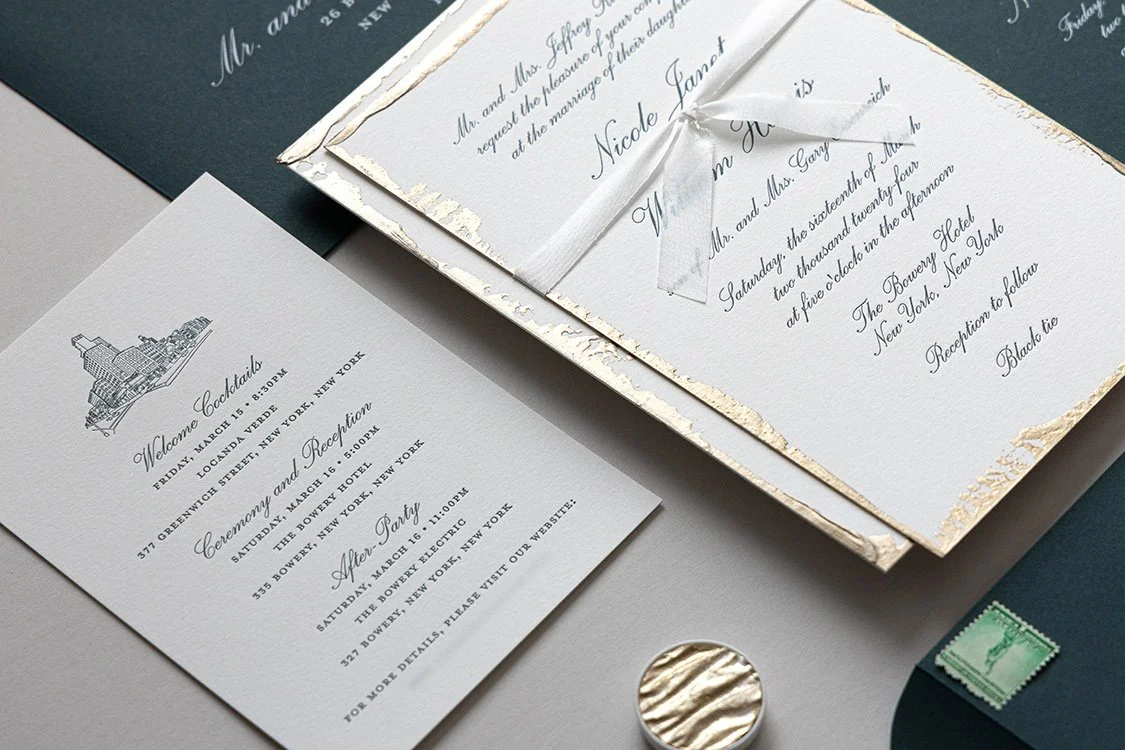 Mr. and
26 B
NEW
Friday,
two
Mr. and Mrs. Jeffrey
request the pleasure of your
at the marriage of their daughter
Nicole Janet
is
Mr. and Mrs. Gary
Saturday, the sixteenth of March
two thousand twenty-four
at five o'clock in the afternoon
The Bowery Hotel
New York, New York
Reception to follow
Black tie
Welcome Cocktails
FRIDAY, MARCH 15 • 8:30PM
LOCANDA VERDE
377 GREENWICH STREET, NEW YORK, NEW YORK
Ceremony and Reception
SATURDAY, MARCH 16 • 5:00PM
THE BOWERY HOTEL
335 BOWERY, NEW YORK, NEW YORK
After-Party
SATURDAY, MARCH 16 • 11:00PM
THE BOWERY ELECTRIC
327 BOWERY, NEW YORK, NEW YORK
FOR MORE DETAILS, PLEASE VISIT OUR WEBSITE: